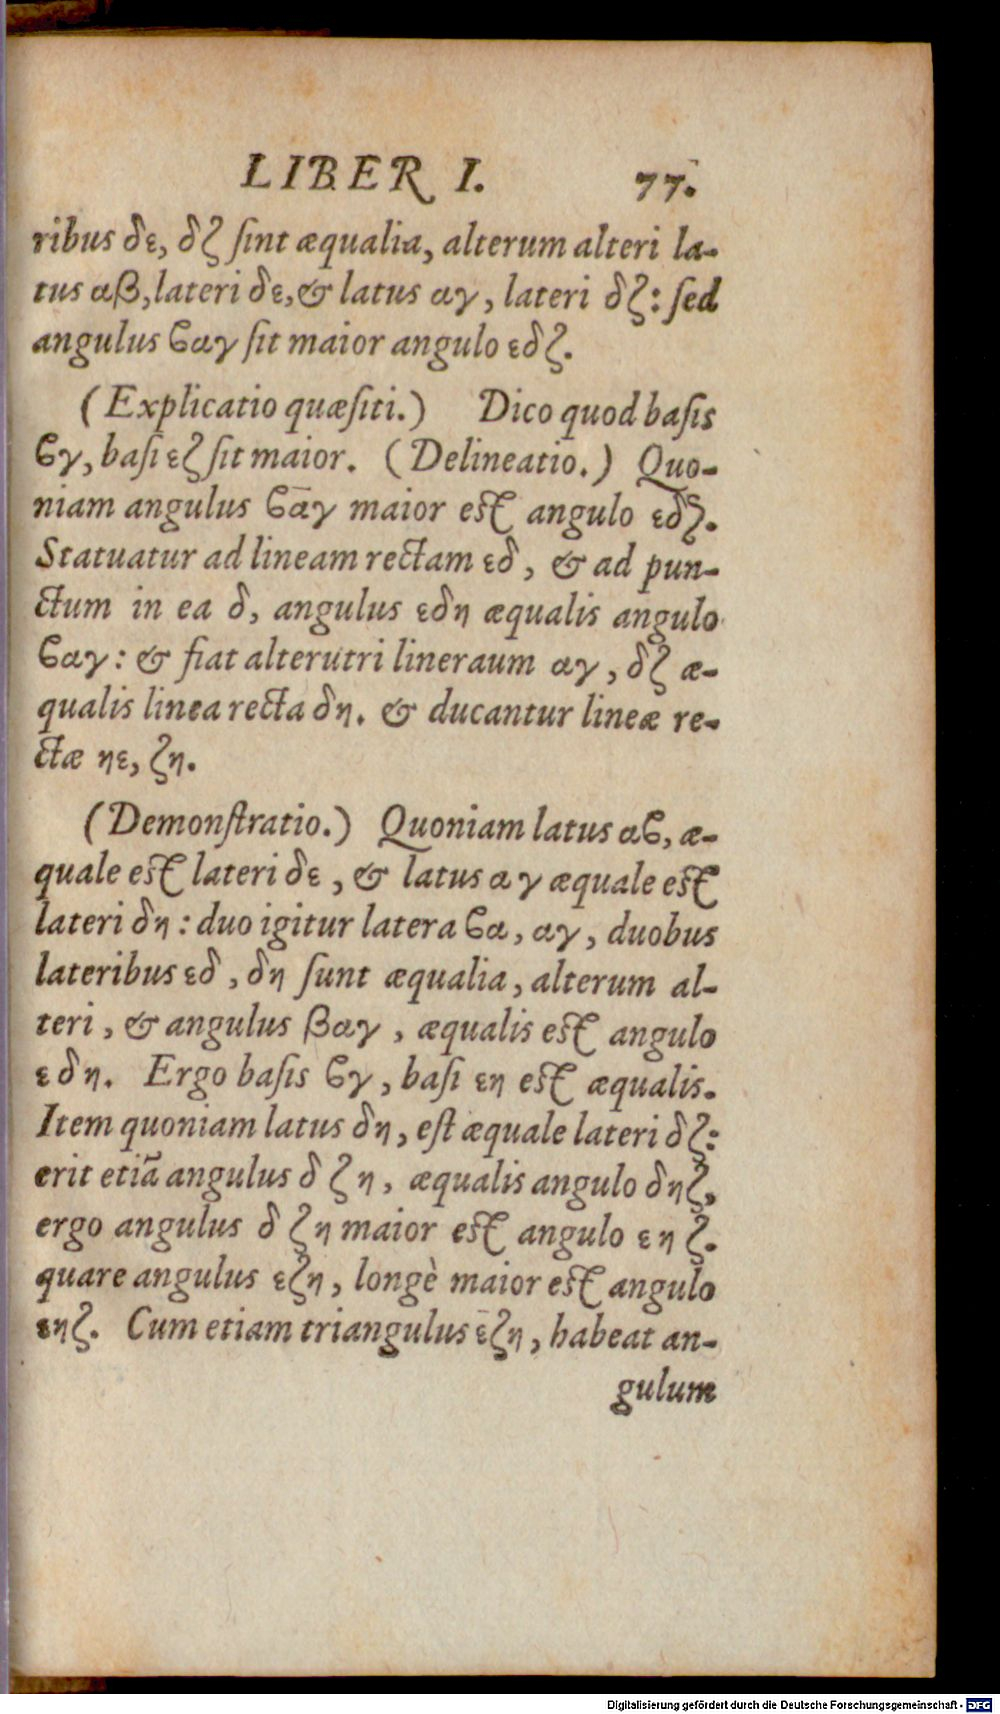 LIBER I. 77.
ribus δε, δζ ſint æqualia, alterum alteri la-
tus αβ, lateri δε, & latus αγ, lateri δζ: ſed
angulus ϐαγ ſit maior angulo εδζ.
(Explicatio quæſiti.) Dico quod baſis
ϐγ, baſi εζ ſit maior. (Delineatio.) Quo-
niam angulus ϐᾱγ maior eſt angulo εδζ.
Statuatur ad lineam rectam εδ, & ad pun-
ctum in ea δ, angulus εδη æqualis angulo
ϐαγ: & fiat alterutri lineraum αγ, δζ æ-
qualis linea recta δη. & ducantur lineæ re-
ctæ ηε, ζη.
(Demonſtratio.) Quoniam latus αϐ, æ-
quale eſt lateri δε, & latus αγ æquale eſt
lateri δη: duo igitur latera ϐα, αγ, duobus
lateribus εδ, δη ſunt æqualia, alterum al-
teri, & angulus βαγ, æqualis eſt angulo
εδη. Ergo baſis ϐγ, baſi εη eſt æqualis.
Item quoniam latus δη, eſt æquale lateri δζ:
erit etiã angulus δζη, æqualis angulo δηζ,
ergo angulus δζη maior eſt angulo εηζ.
quare angulus εζη, longè maior eſt angulo
εηζ. Cum etiam triangulus ε̄ζη, habeat an-
gulum
Digitalisierung gefördert durch die Deutsche Forschungsgemeinschaft - DFG